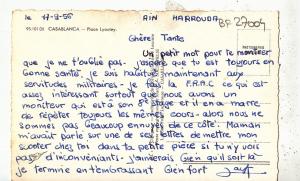 le 17-8-56 AIN HARROUDA BP 27009
95/101 01 CASABLANCA - Place Lyautey.
Chère Tante
Un petit mot pour te montrer
que je ne t'oublie pas. j'espère que tu est toujours en
bonne santé, je suis habitué maintenant aux
servitudes militaires. je fais la F.R.A.C ce qui est
assez intéressant surtout que nous avons un
moniteur qui est à son stage et il en a marre
de répéter toujours les mêmes cours. alors nous ne
sommes pas beaucoup ennuyés de ce côté. Maman
m'avait parlé sur une de ses lettres de mettre mon
scooter chez toi dans ta petite pièce si tu n'y vois
pas d'inconvénients. j'aimerais bien qu'il soit là
je termine en t'embrassant bien fort